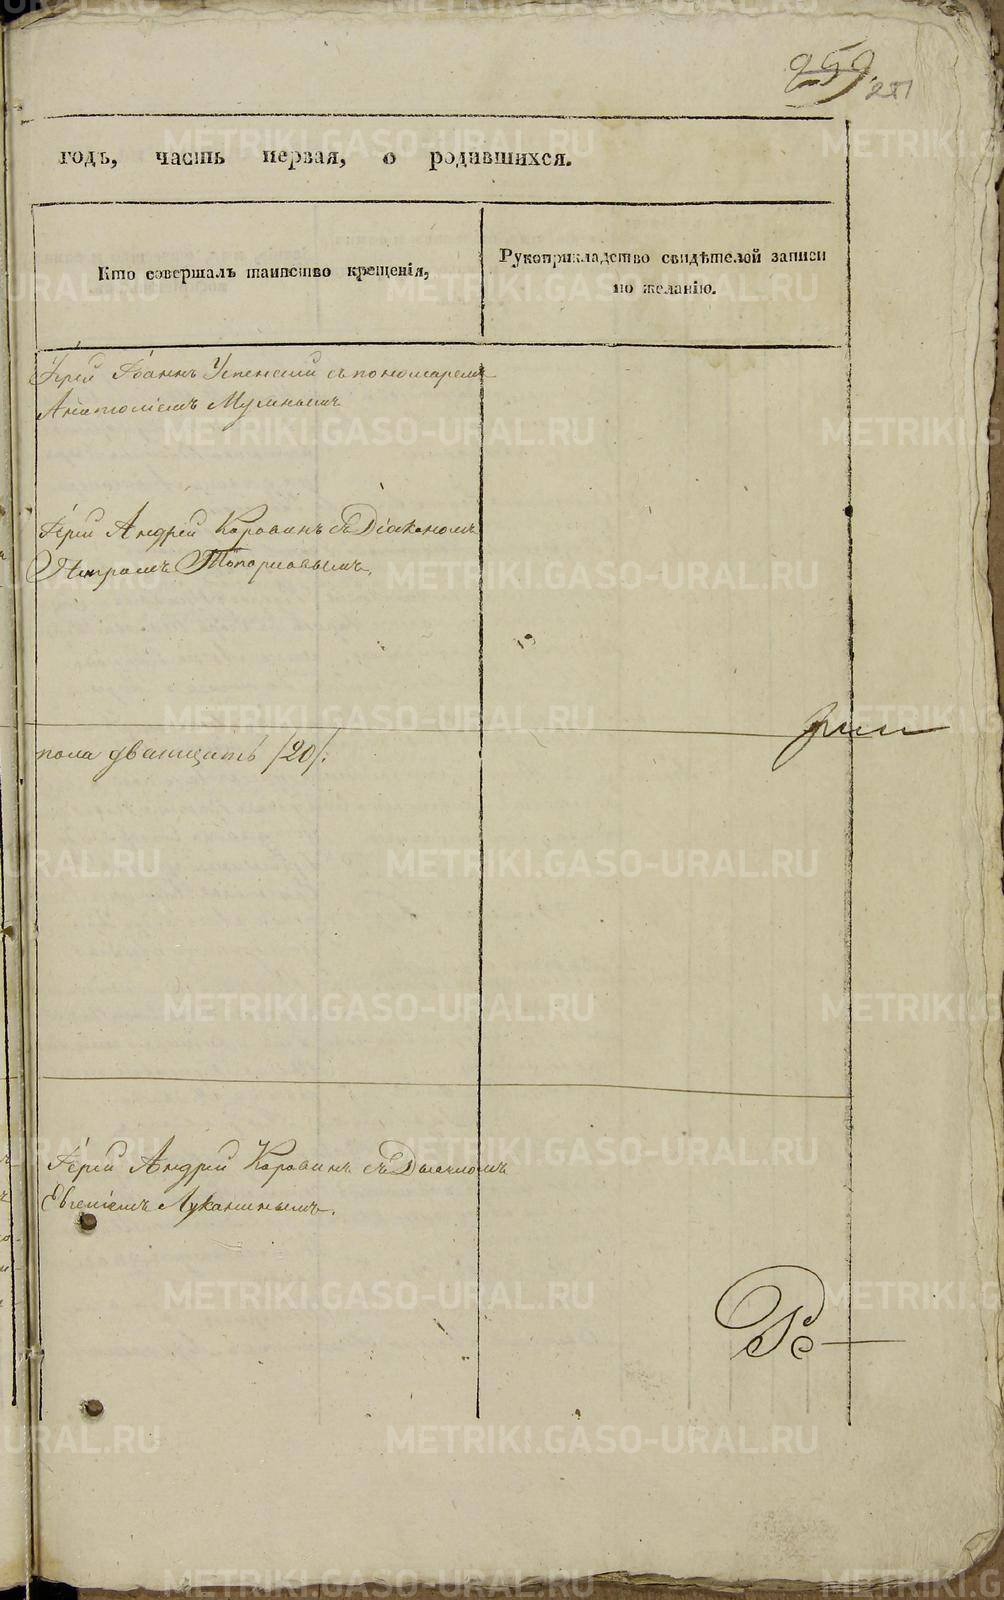 259.
251
годъ, часть первая, о родившихся.
Кто совершалъ таинство крещенія,
Рукоприкладство свидѣтелей записи
по желанію.
Іерей Іоаннъ Успенский съ пономаремъ
Анатоліемъ
Іерей Андрей Коровинъ съ Діакономъ
Петромъ Топорковымъ.
пола дватцать /20/.
Іерей Андрей Коровинъ съ Дьячкомъ
Евгеніемъ Луканинымъ.
METRIKI.GASO-URAL.RU